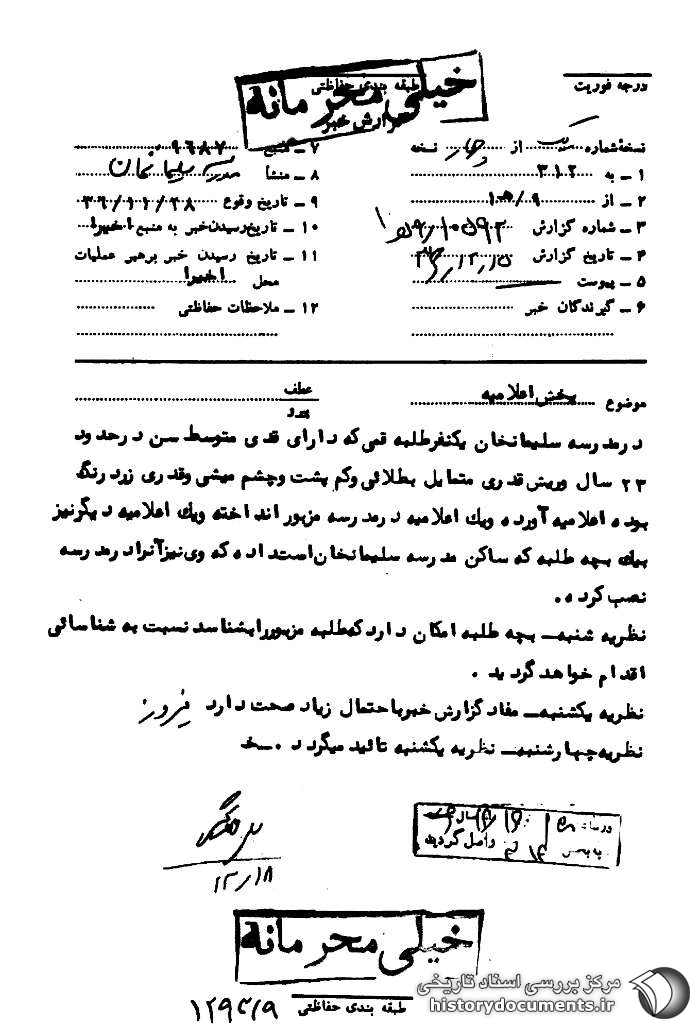 درجه فوریت
طبقه بندی حفاظتی
خیلی محرمانه
گزارش خبر
نسخهٔ شماره یک از چهار نسخه
۱ – به ۳۱۲
۲ – از
۳ – شماره گزارش
۴ – تاریخ گزارش
۵ – پیوست
۶ – گیرندگان خبر
۷ – منبع ۹۶۸۷
۸ – منشأ مدرسه سلیمانخان
۹ – تاریخ وقوع ۳۶/۱۱/۲۸
۱۰ – تاریخ رسیدن خبر به منبع اخیرا
۱۱ – تاریخ رسیدن خبر برهبر عملیات
محل اخیرا
۱۲ – ملاحظات حفاظتی
موضوع پخش اعلامیه
عطف
پیرو
در مدرسه سلیمانخان یکنفر طلبه قمی که دارای قدی متوسط سن در حدود
۲۳ سال وریش قدری متمایل بطلائی وکم پشت وچشم میشی وقدری زرد رنگ
بوده اعلامیه آورده ویك اعلامیه در مدرسه مزبور انداخته ویك اعلامیه دیگر نیز
بیك بچه طلبه که ساکن مدرسه سلیمانخان است داده که وی نیز آنرا در مدرسه
نصب کرده.
نظریه شنبه– بچه طلبه امکان دارد که طلبه مزبور را بشناسد نسبت به شناسائی
اقدام خواهد گردید .
نظریه یکشنبه– مفاد گزارش خبر با احتمال زیاد صحت دارد فیروز
نظریه چهارشنبه– نظریه یکشنبه تائید میگردد .–خ
۱۲/۱۸
واصل گردید
خیلی محرمانه
طبقه بندی حفاظتی
۱۲۹۴/۹
مرکز بررسی اسناد تاریخی
historydocuments.ir